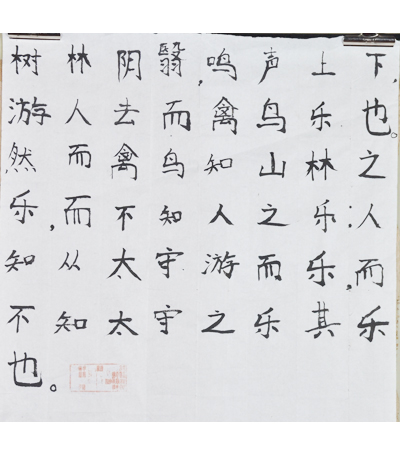 树林阴翳,鸣声上下,
游人去而禽鸟乐也。
然而禽鸟知山林之
乐,而不知人之乐;人
知从太守游而乐,而
不知太守之乐其乐
也。